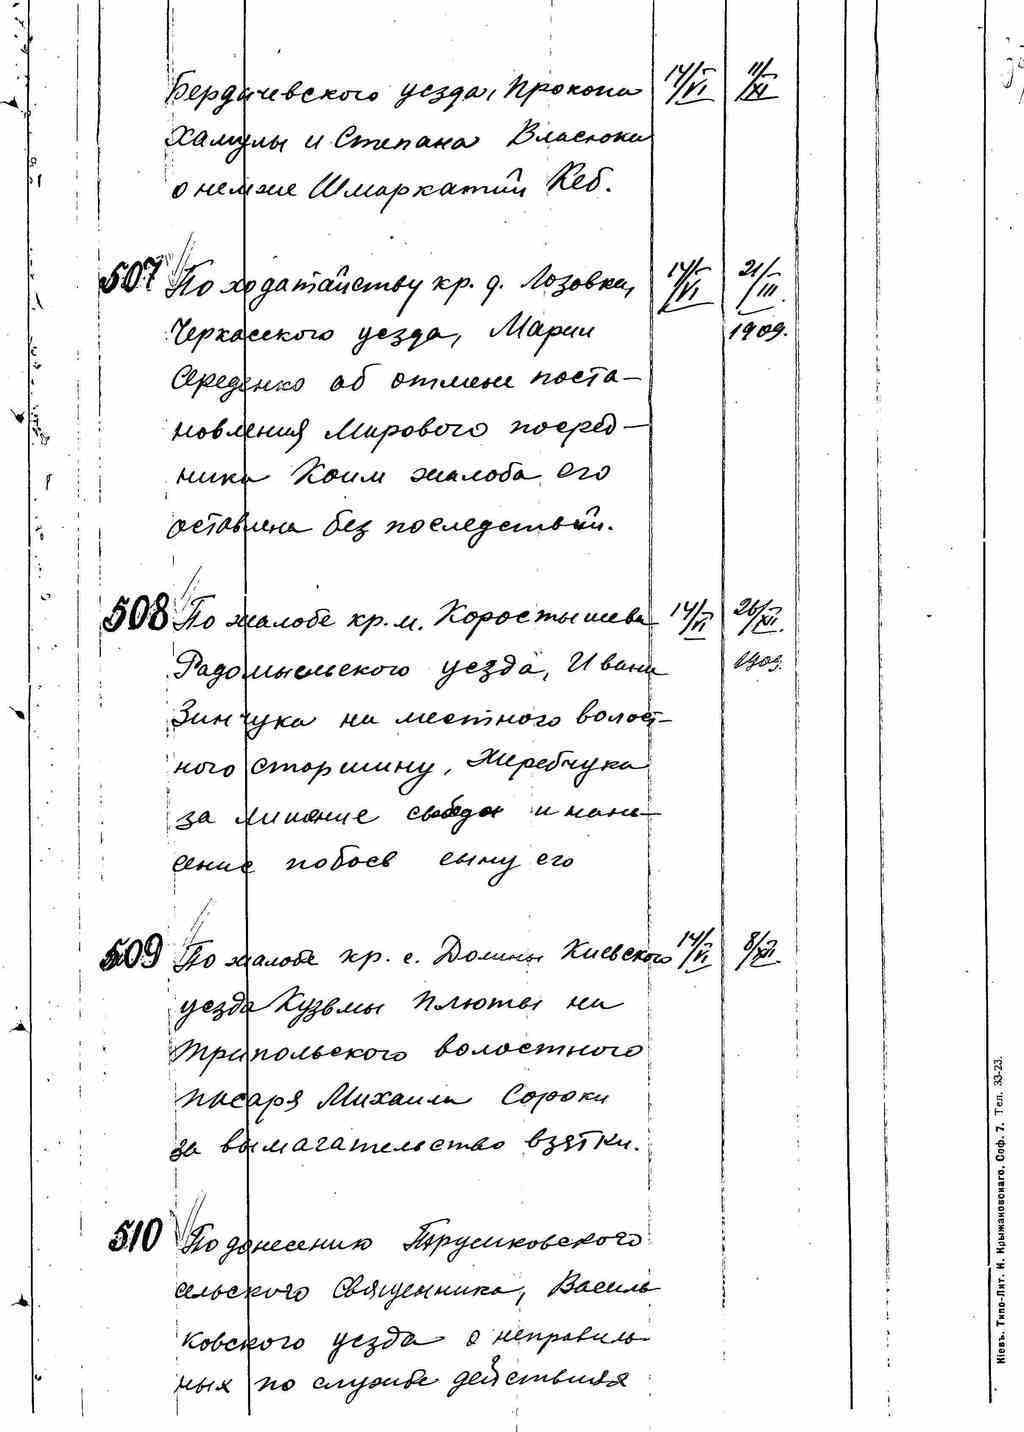 Бердичевского уезда, Прокопа 14/VI 11/XI
Хамулы и Степана Власюка
о немже Шмаркатий Кеб.
507 По ходатайству кр. д. Лозовки, 14/VI 21/III
Черкасского уезда, Марии 1909.
Середенко об отмене поста-
новления Мирового посред-
ника Коим жалоба его
оставлена без последствий.
508 По жалобе кр. м. Коростышева 14/VI 26/XII.
Радомысльского уезда, Ивана
Зинчука на местного волост-
ного старшину, Жеребчука
за лишение свободы и нане-
сение побоев сыну его
509 По жалобе кр. с. Долины Киевского 14/VI 8/XII.
уезда Кузьмы Плюты на
Трипольского волостного
писаря Михаила Сороки
за вымагательство взятки.
510 По донесению Трушковского
сельского Священника, Василь
ковского уезда о неправиль-
ных по службе действиях
Кіевъ. Типо-Лит. И. Крыжановскаго, Соф. 7. Тел. 33-23.